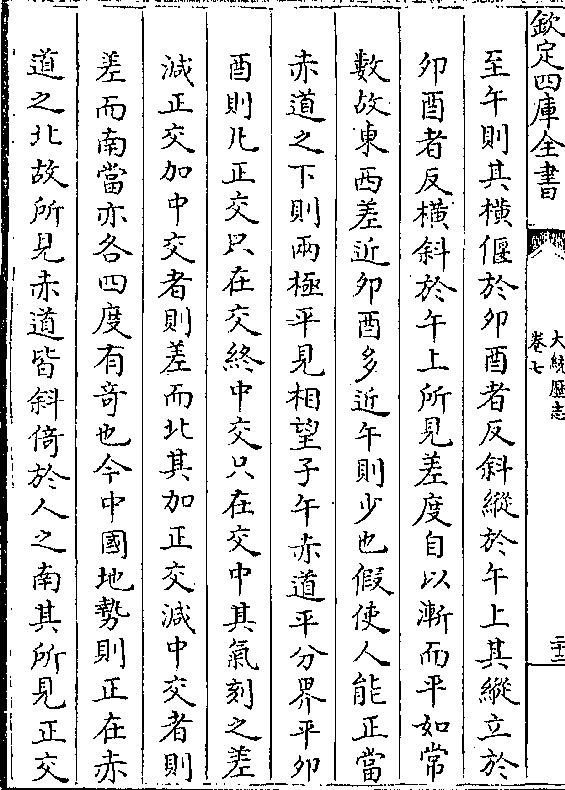 欽定四庫全書
大統歷志
卷七
二十二
至午則其橫偃於卯酉者反斜縱於午上其縱立於
卯酉者反橫斜於午上所見差度自以漸而平如常
數故東西差近卯酉多近午則少也假使人能正當
赤道之下則兩極平見相望子午赤道平分界平卯
酉則凡正交只在交終中交只在交中其氣刻之差
減正交加中交者則差而北其加正交減中交者則
差而南當亦各四度有奇也今中國地勢則正在赤
道之北故所見赤道皆斜倚於人之南其所見正交